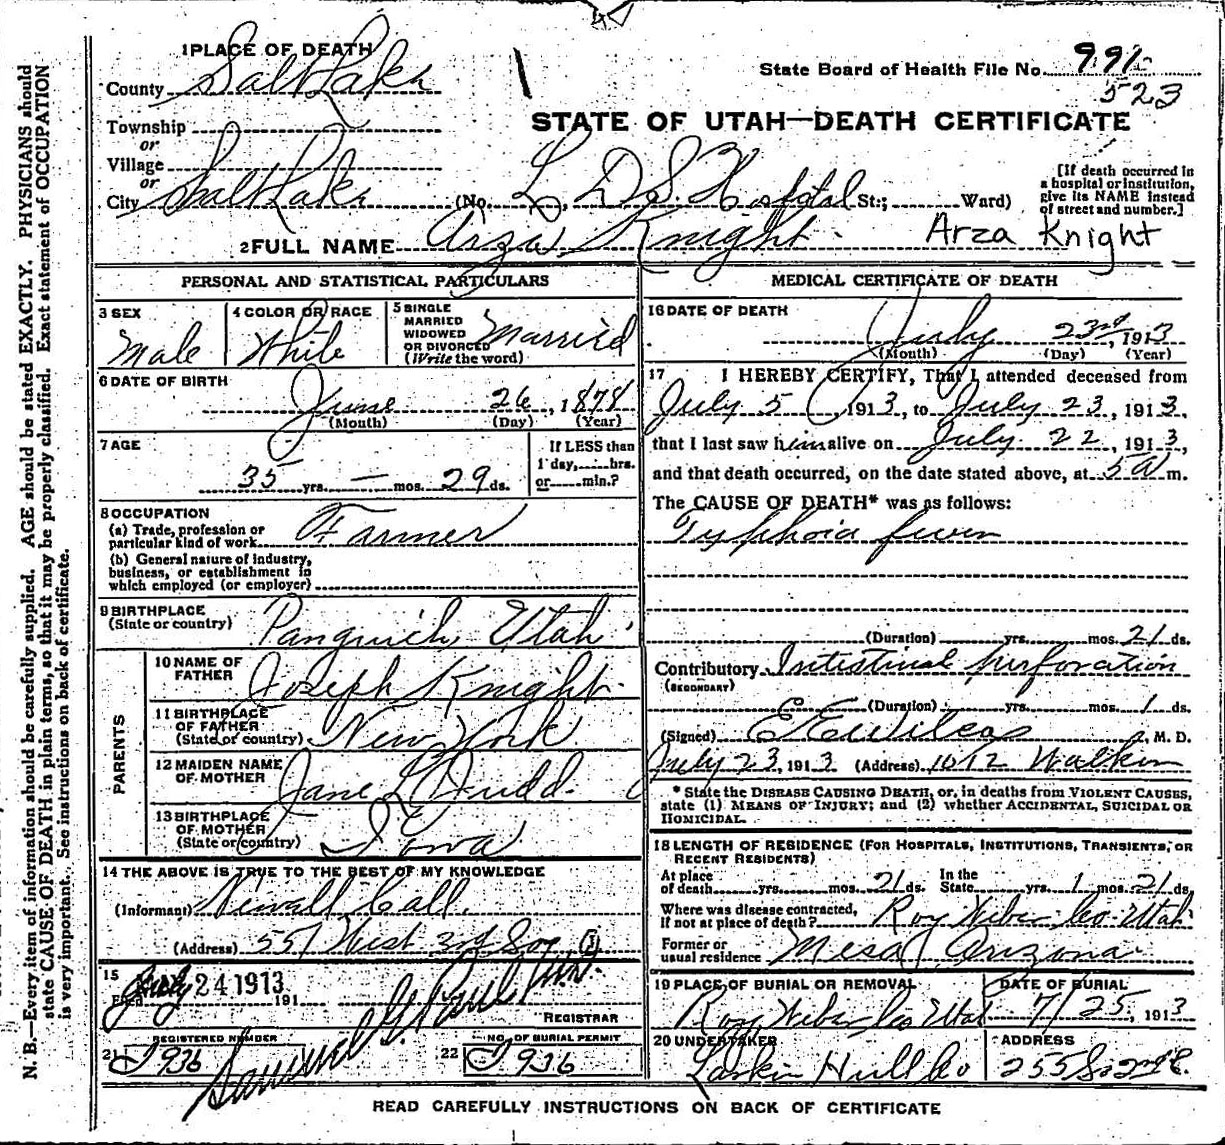 1 PLACE OF DEATH
County Salt Lake
State Board of Health File No. 991
523
Township
or
Village
or
City Salt Lake
STATE OF UTAH—DEATH CERTIFICATE
(No. L. D. S. Hospital St.; Ward)
[If death occurred in
a hospital or institution,
give its NAME instead
of street and number.]
2 FULL NAME Arza Knight Arza Knight
PERSONAL AND STATISTICAL PARTICULARS
3 SEX
Male
4 COLOR OR RACE
White
5 SINGLE
MARRIED
WIDOWED
OR DIVORCED
(Write the word)
Married
6 DATE OF BIRTH
June 26, 1878
(Month) (Day) (Year)
7 AGE
35 yrs. — mos. 29 ds.
If LESS than
1 day, hrs.
or min.?
8 OCCUPATION
(a) Trade, profession or
particular kind of work Farmer
(b) General nature of industry,
business, or establishment in
which employed (or employer)
9 BIRTHPLACE
(State or country) Panguich, Utah
PARENTS
10 NAME OF
FATHER Joseph Knight
11 BIRTHPLACE
OF FATHER
(State or country) New York
12 MAIDEN NAME
OF MOTHER Jane L Judd
13 BIRTHPLACE
OF MOTHER
(State or country) Iowa
14 THE ABOVE IS TRUE TO THE BEST OF MY KNOWLEDGE
(Informant) Newall Call
(Address) 551 West 3rd So
15
Filed July 24 1913 191
Samuel G. Paul M.D.
REGISTRAR
REGISTERED NUMBER
21 J 936
NO. OF BURIAL PERMIT
22 J 936
MEDICAL CERTIFICATE OF DEATH
16 DATE OF DEATH
July 23rd, 1913
(Month) (Day) (Year)
17 I HEREBY CERTIFY, That I attended deceased from
July 5, 1913, to July 23, 1913,
that I last saw him alive on July 22, 1913,
and that death occurred, on the date stated above, at 5 A m.
The CAUSE OF DEATH* was as follows:
Typhoid fever
(Duration) yrs. mos. 21 ds.
Contributory Intestinal perforation
(SECONDARY)
(Duration) yrs. mos. 1 ds.
(Signed) E E Wilcox, M. D.
July 23, 1913 (Address) 1012 Walker
* State the DISEASE CAUSING DEATH, or, in deaths from VIOLENT CAUSES,
state (1) MEANS OF INJURY; and (2) whether ACCIDENTAL, SUICIDAL OR
HOMICIDAL.
18 LENGTH OF RESIDENCE (FOR HOSPITALS, INSTITUTIONS, TRANSIENTS, OR
RECENT RESIDENTS)
At place
of death yrs. mos. 21 ds.
In the
State yrs. 1 mos. 21 ds.
Where was disease contracted,
if not at place of death? Roy Weber Co Utah
Former or
usual residence Mesa Arizona
19 PLACE OF BURIAL OR REMOVAL
Roy Weber Co Utah
DATE OF BURIAL
7/25, 1913
20 UNDERTAKER
Larkin Hull Co
ADDRESS
255 So 2nd E.
READ CAREFULLY INSTRUCTIONS ON BACK OF CERTIFICATE
N. B.—Every item of information should be carefully supplied. AGE should be stated EXACTLY. PHYSICIANS should
state CAUSE OF DEATH in plain terms, so that it may be properly classified. Exact statement of OCCUPATION
is very important. See instructions on back of certificate.